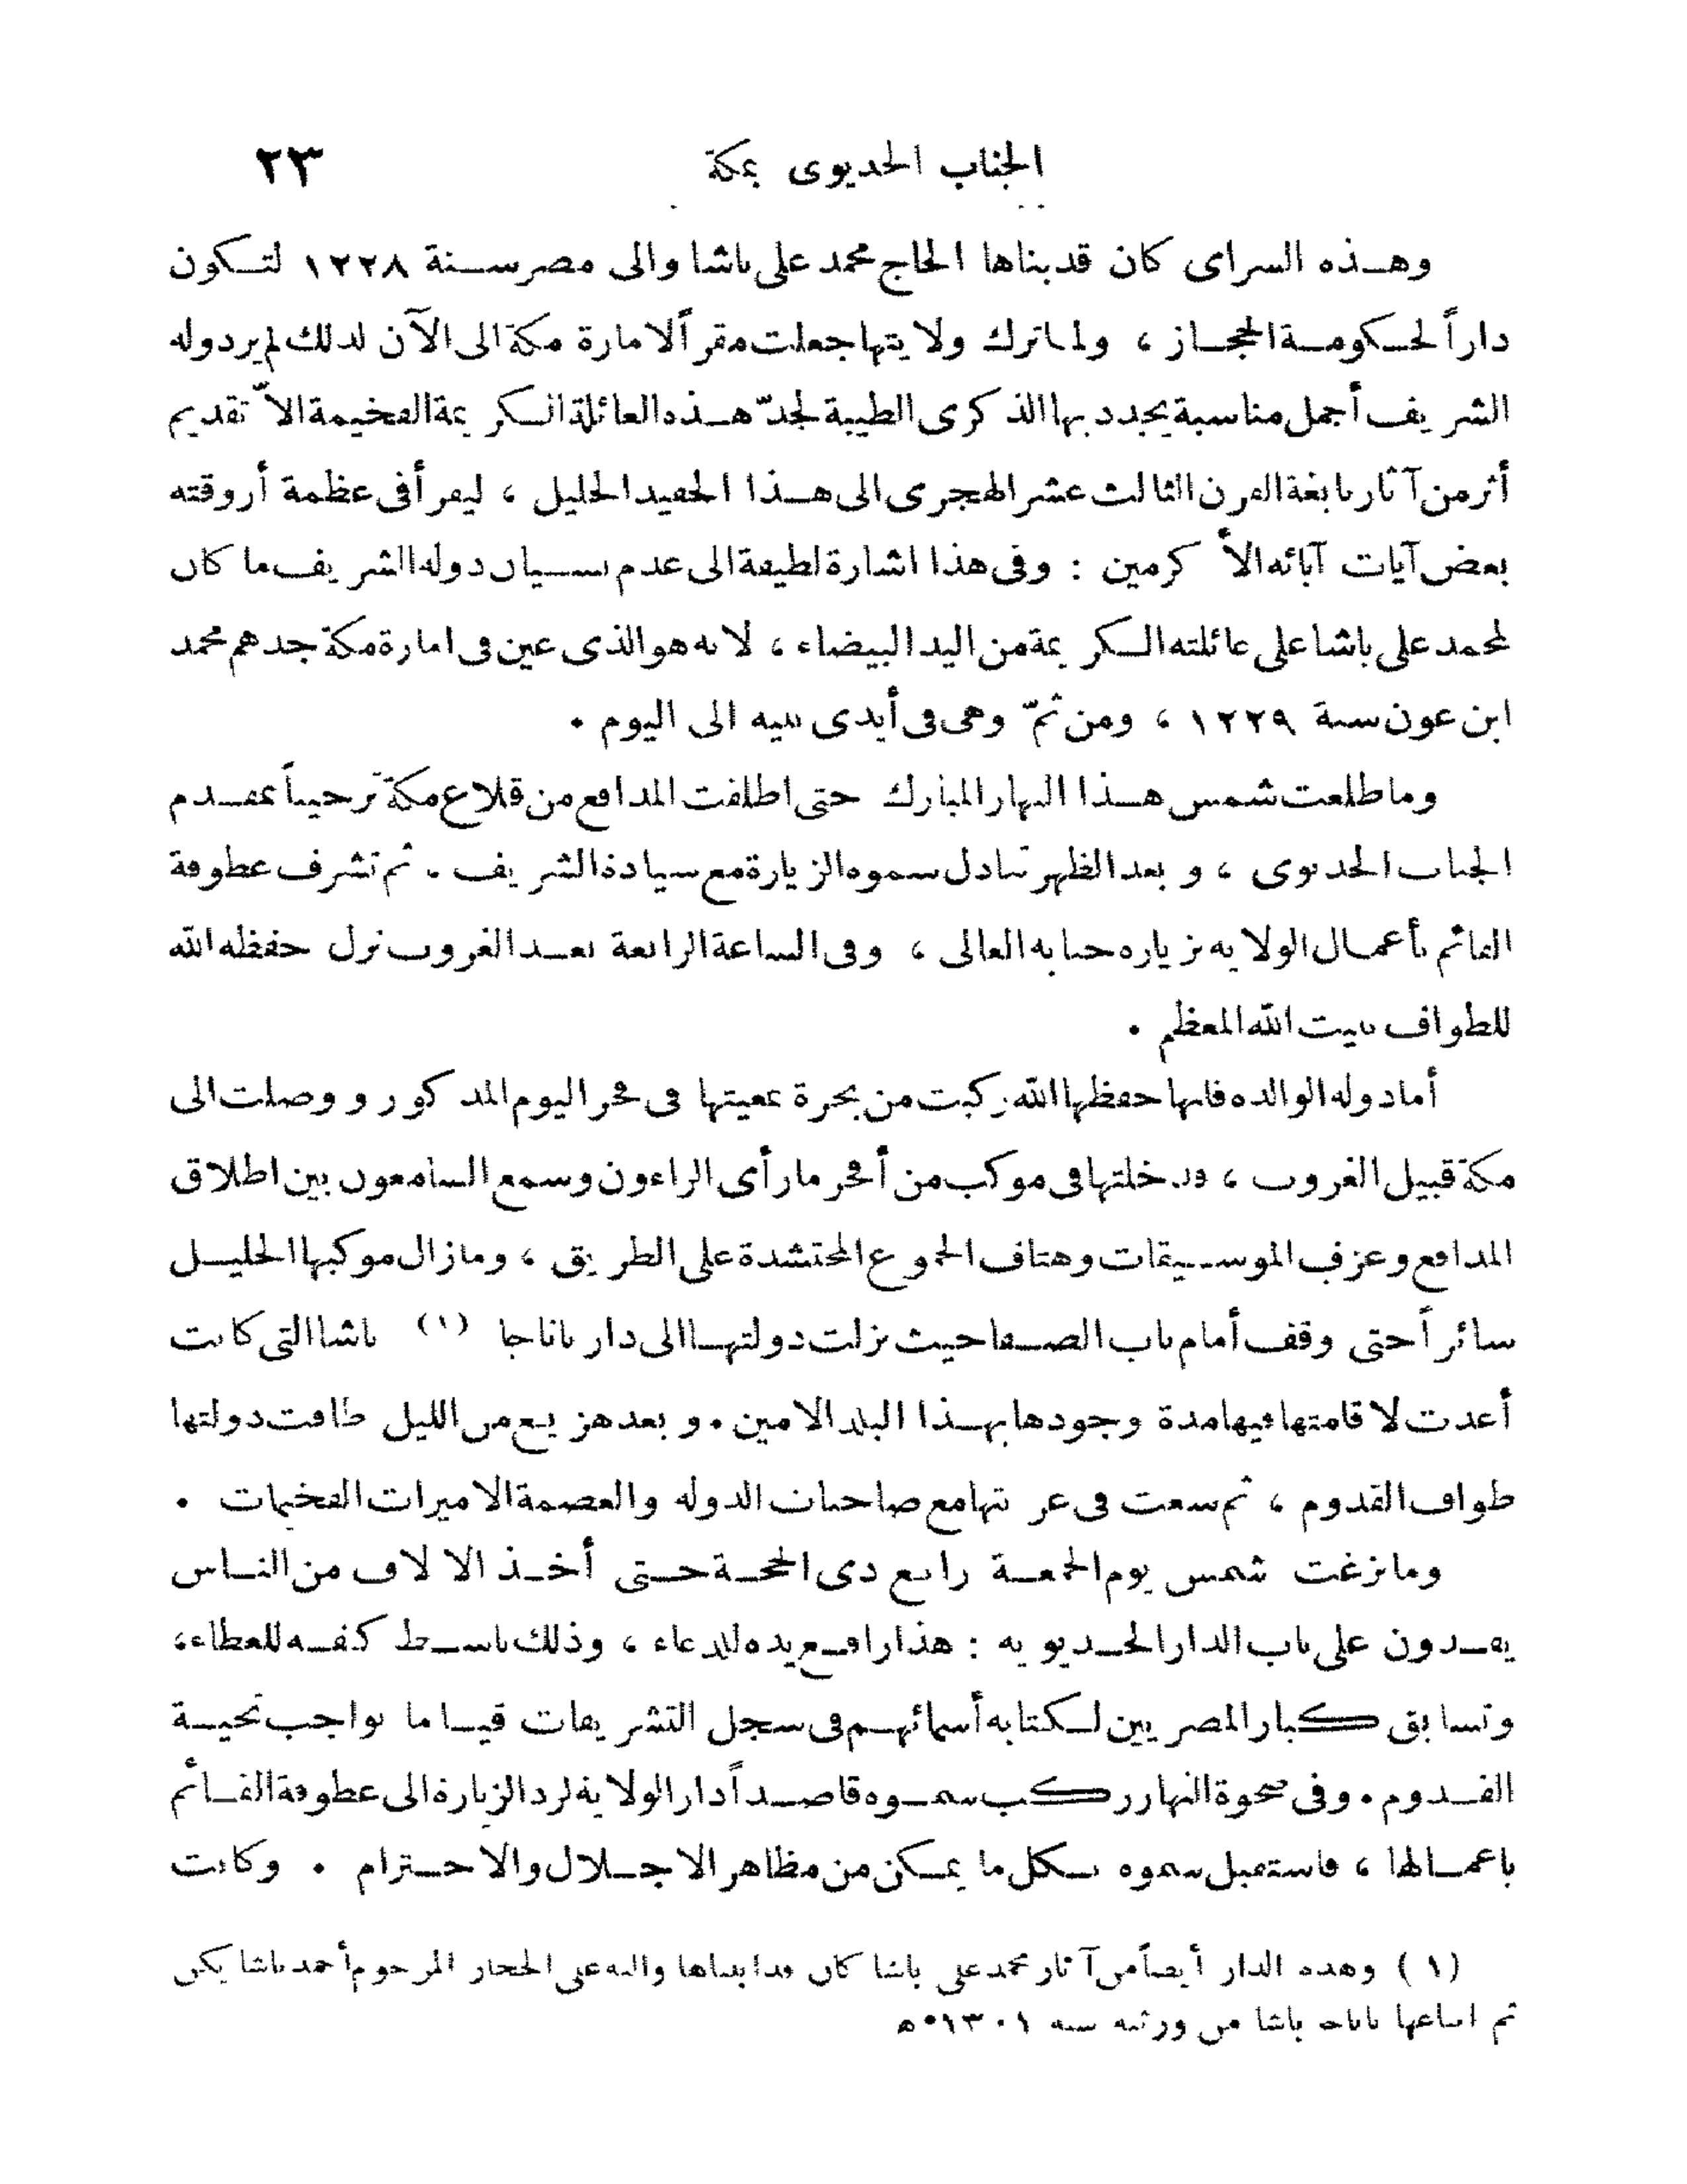 الجناب الخديوى بمكة ٢٣
وهذه السراى كان قد بناها الحاج محمد على باشا والى مصر سنة ١٢٢٨ لتكون
داراً لحكومة الحجاز ، ولما ترك ولايتها جعلت مقراً لامارة مكة الى الآن لذلك لم ير دولة
الشريف أجمل مناسبة يجدد بها الذكرى الطيبة لجدّ هذه العائلة الكريمة الفخيمة الاّ تقديم
أثر من آثار نابغة القرن الثالث عشر الهجرى الى هذا الحفيد الجليل ، ليقرأ فى عظمة أروقته
بعض آيات آبائه الأكرمين : وفى هذا اشارة لطيفة الى عدم نسيان دولة الشريف ما كان
لمحمد على باشا على عائلته الكريمة من اليد البيضاء ، لانه هو الذى عين فى امارة مكة جدهم محمد
ابن عون سنة ١٢٢٩ ، ومن ثمّ وهى فى أيدى بنيه الى اليوم .
وما طلعت شمس هذا النهار المبارك حتى اطلقت المدافع من قلاع مكة ترحيباً بمقدم
الجناب الخديوى ، و بعد الظهر تبادل سموه الزيارة مع سيادة الشريف . ثم تشرف عطوفة
القائم بأعمال الولاية بزيارة جنابه العالى ، وفى الساعة الرابعة بعد الغروب نزل حفظه الله
للطواف ببيت الله المعظم .
أما دولة الوالدة فانها حفظها الله ركبت من بحرة بمعيتها فى فجر اليوم المذكور و وصلت الى
مكة قبيل الغروب ، ودخلتها فى موكب من أفخر ما رأى الراءون وسمع السامعون بين اطلاق
المدافع وعزف الموسيقات وهتاف الجموع المحتشدة على الطريق ، وما زال موكبها الجليل
سائراً حتى وقف أمام باب الصفا حيث نزلت دولتها الى دار باناجا (١) باشا التى كانت
أعدت لاقامتها فيها مدة وجودها بهذا البلد الامين . و بعد هزيع من الليل طافت دولتها
طواف القدوم ، ثم سعت فى عربتها مع صاحبات الدولة والعصمة الاميرات الفخيمات .
وما بزغت شمس يوم الجمعة رابع ذى الحجة حتى أخذ الالاف من الناس
يفدون على باب الدار الخديوية : هذا رافع يده للدعاء ، وذلك باسط كفه للعطاء ،
وتسابق كبار المصريين لكتابة أسمائهم فى سجل التشريفات قياما بواجب تحية
القدوم . وفى ضحوة النهار ركب سموه قاصداً دار الولاية لرد الزيارة الى عطوفة القائم
باعمالها ، فاستقبل سموه بكل ما يمكن من مظاهر الاجلال والاحترام . وكانت
(١) وهذه الدار أيضاً من آثار محمد على باشا كان قد ابتناها واليه على الحجاز المرحوم أحمد باشا يكن
ثم ابتاعها باناجه باشا من ورثته سنه ١٣٠١ ه